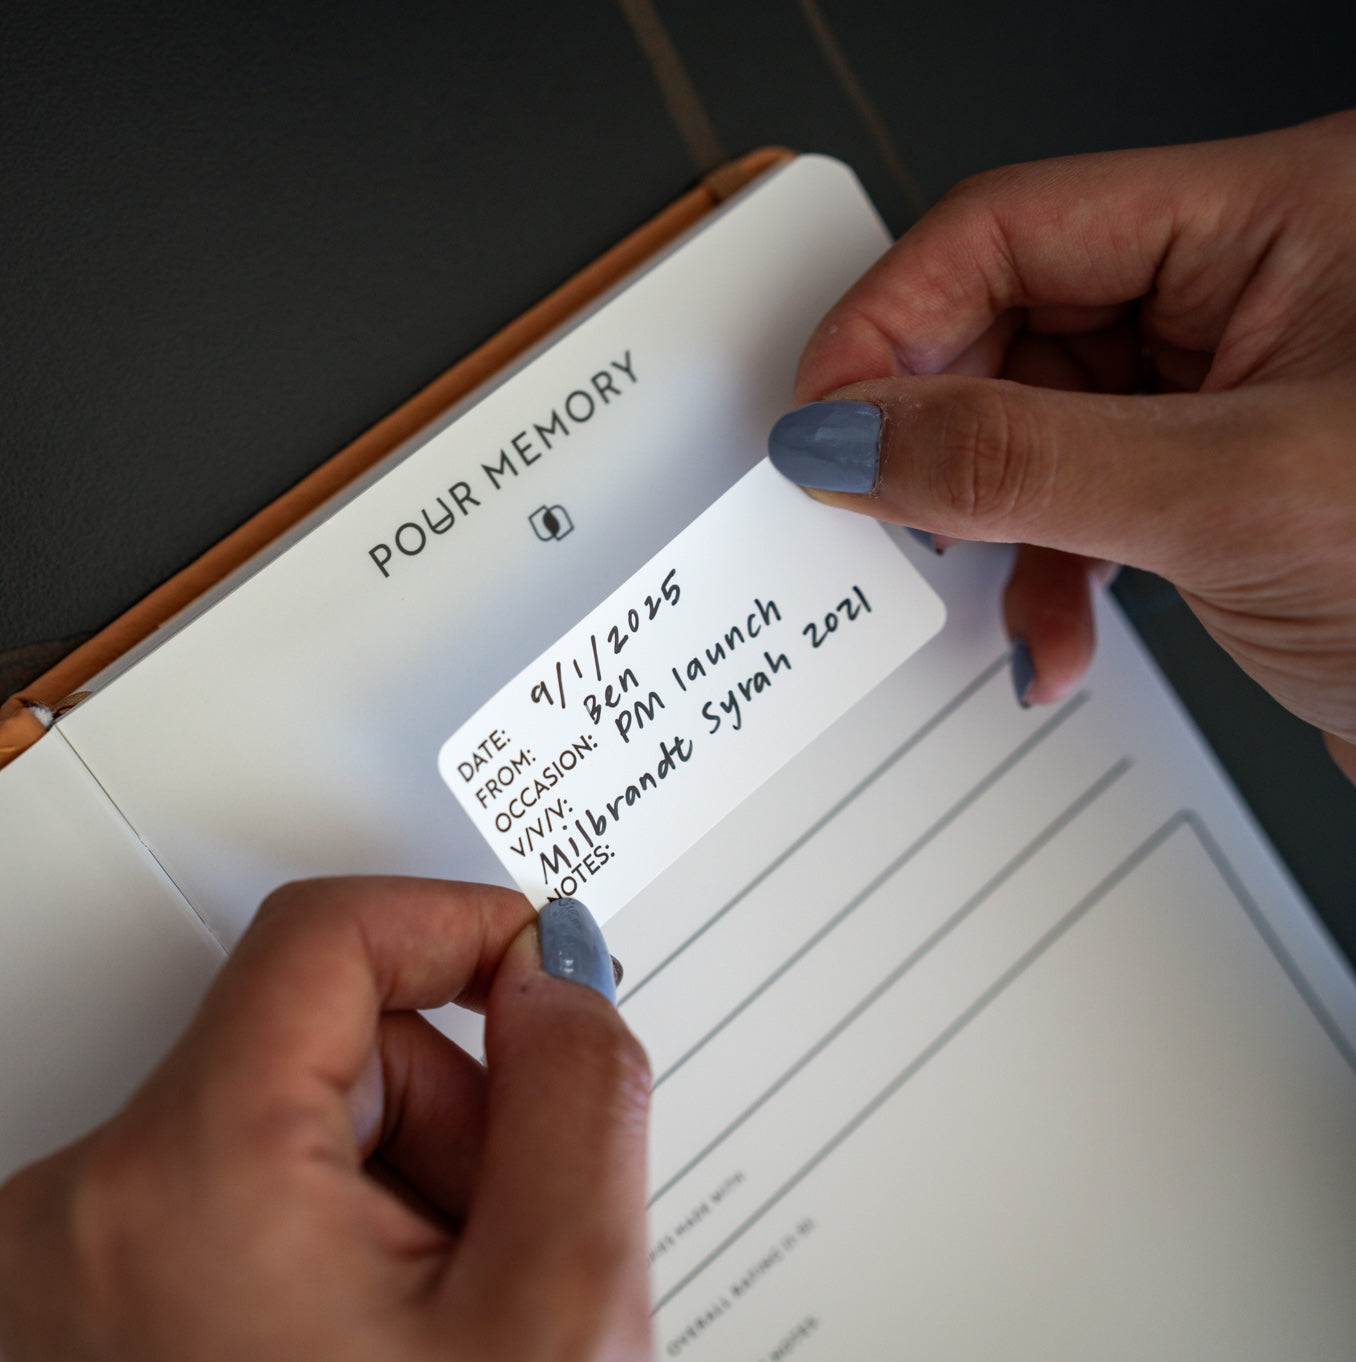 POUR MEMORY
DATE: 9/1/2025
FROM: Ben
OCCASION: PM launch
V/V/V:
Milbrandt Syrah 2021
NOTES:
MADE WITH
OVERALL RATING
NOTES